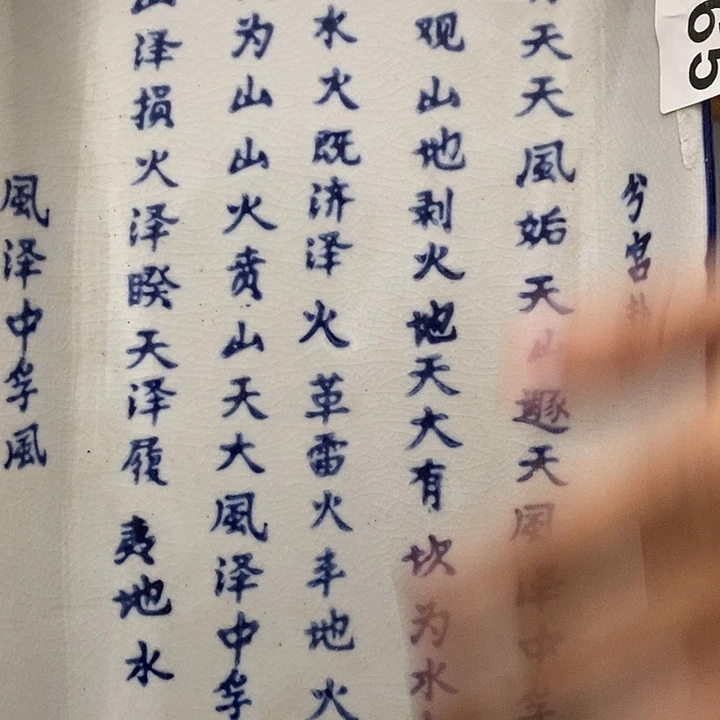 65
分宫
天天風姤天山遯天風泽中孚
观山地剥火地天大有坎为水
水火既济泽火革雷火丰地火
为山山火贲山天大風泽中孚
山泽损火泽睽天泽履夷地水
風泽中孚風